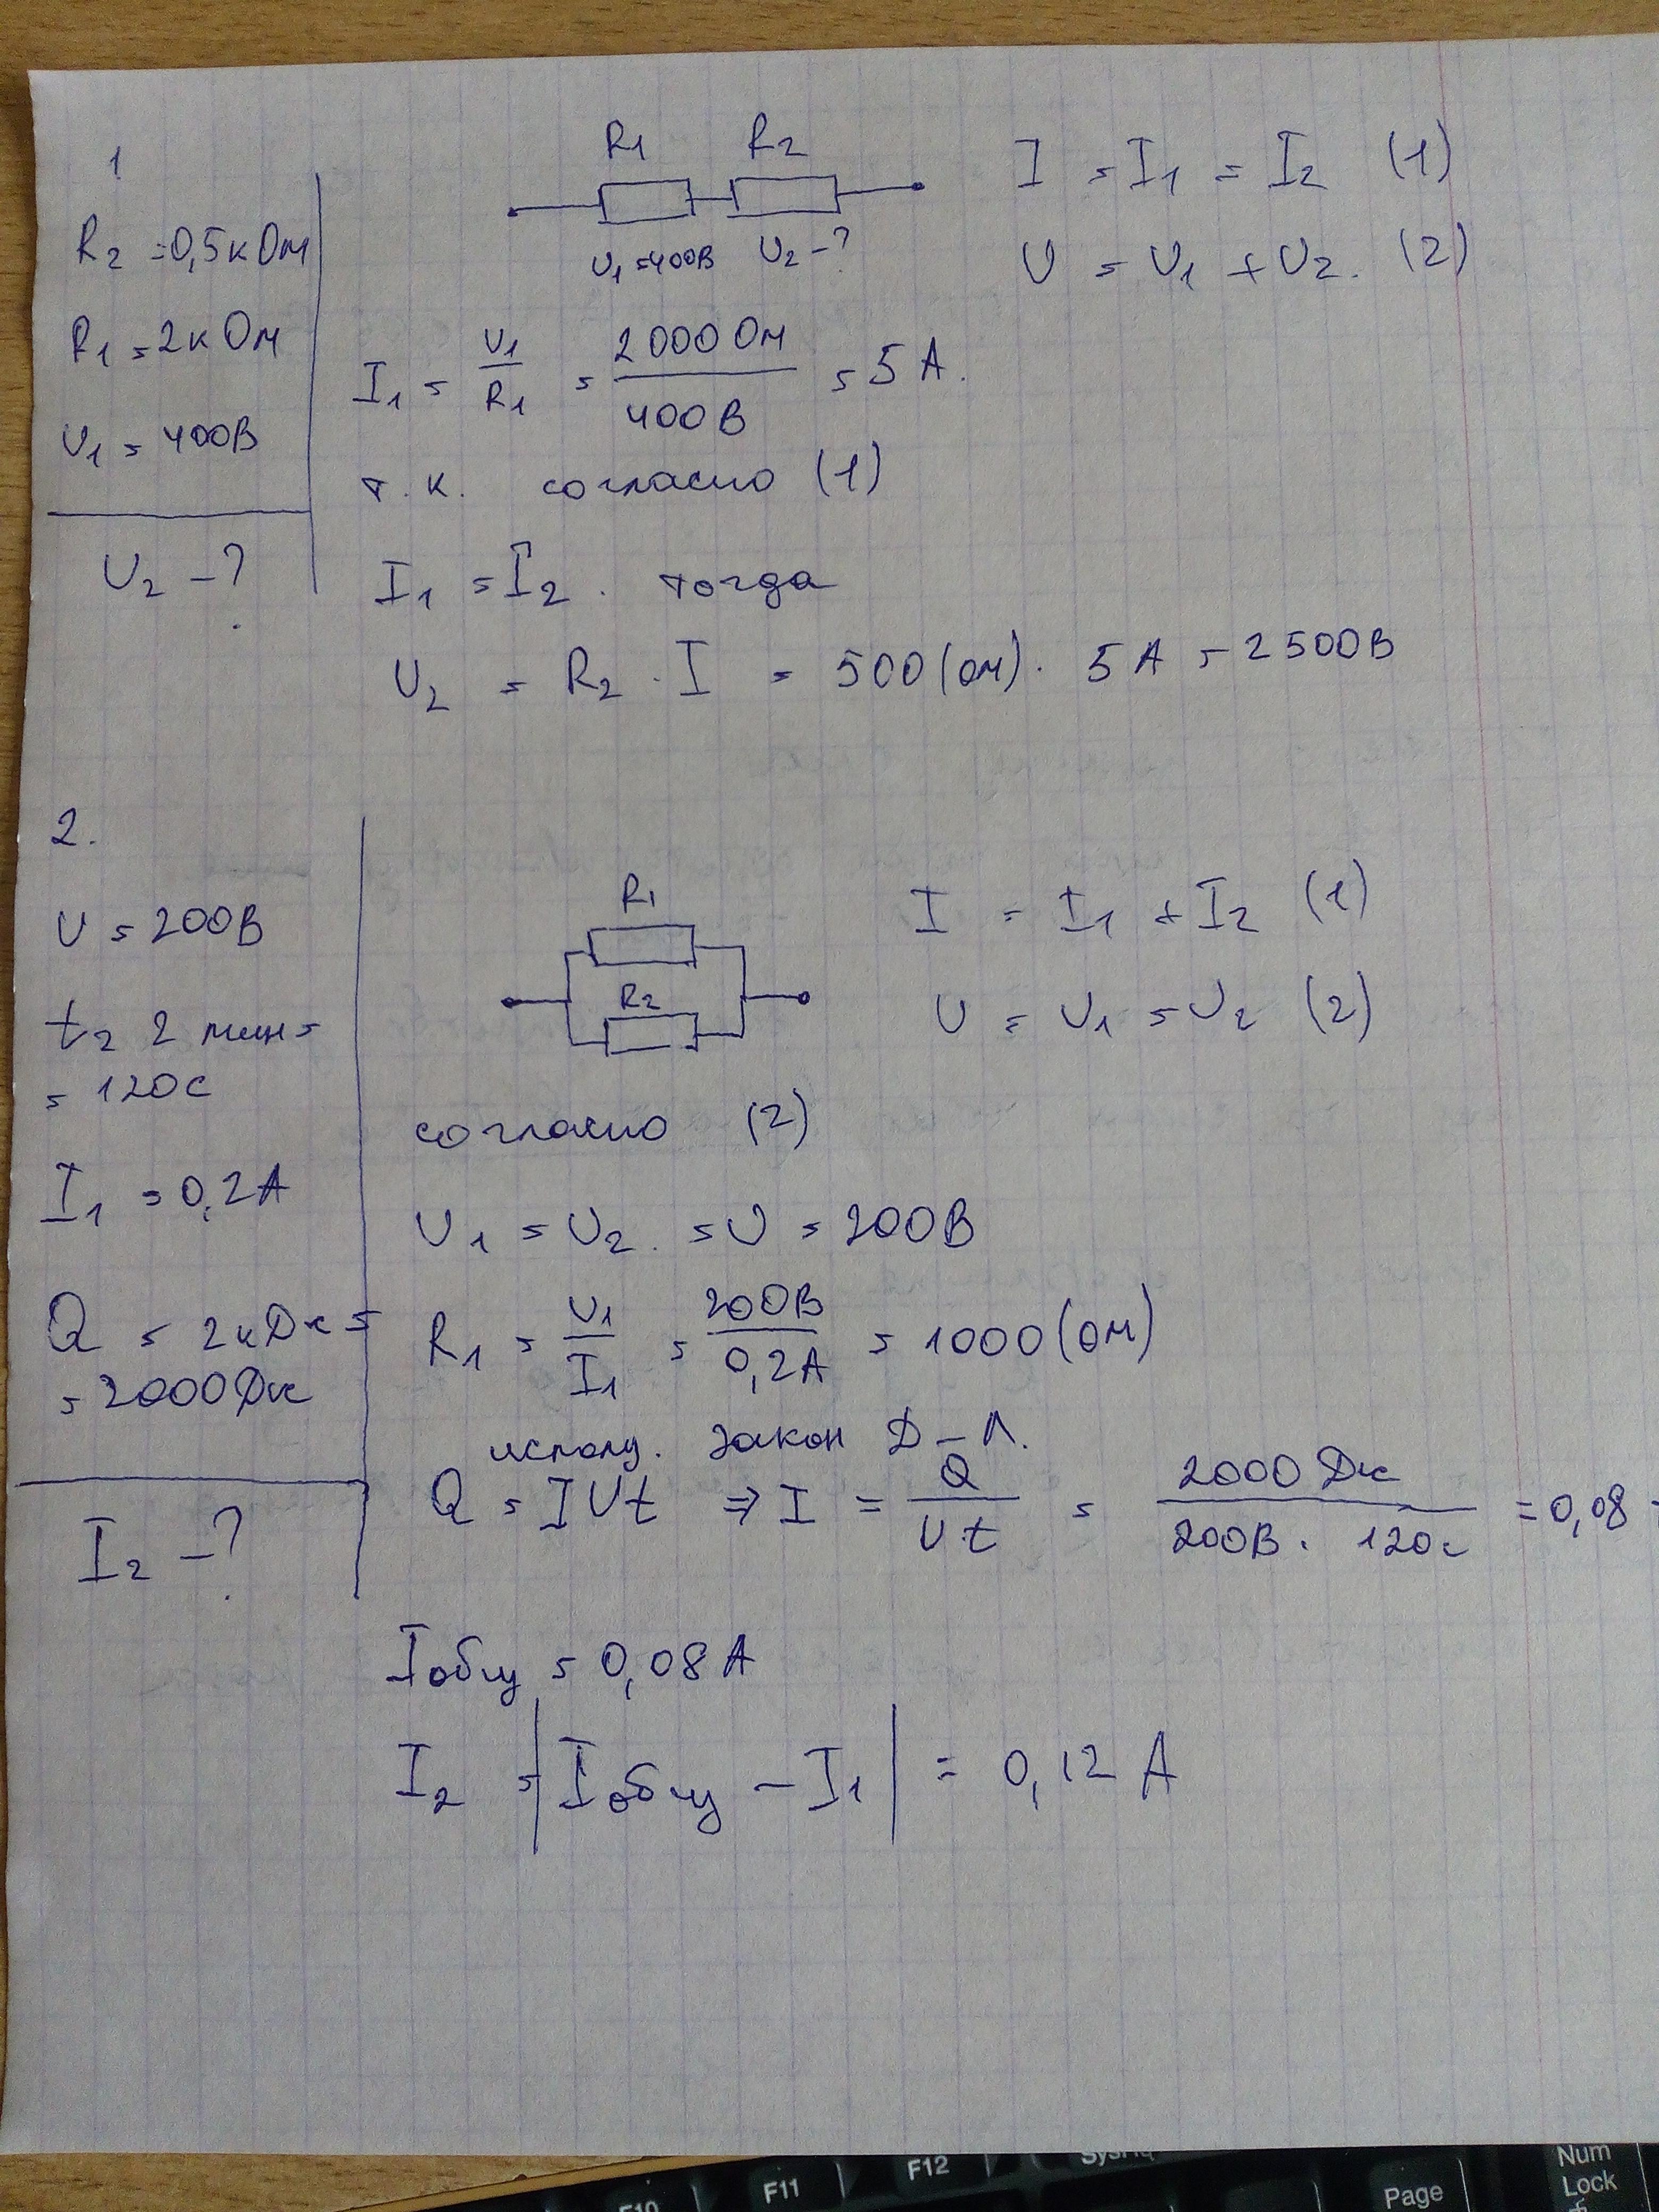 1
R2 = 0,5кОм
R1 = 2кОм
U1 = 400В
U2 – ?
R1 R2
U1 = 400В U2 – ?
I = I1 = I2 (1)
U = U1 + U2. (2)
I1 = U1/R1 = 2000 Ом/400 В = 5 А.
т.к. согласно (1)
I1 = I2. тогда
U2 = R2 · I = 500(ом) · 5 А = 2500В
2.
U = 200В
t = 2 мин =
= 120с
I1 = 0,2А
Q = 2кДж =
= 2000Дж
I2 – ?
R1
R2
I = I1 + I2 (1)
U = U1 = U2 (2)
согласно (2)
U1 = U2. = U = 200В
R1 = U1/I1 = 200В/0,2А = 1000(ом)
использ. закон Д – Л.
Q = IUt ⇒ I = Q/Ut = 2000 Дж/200В · 120с = 0,08
Iобщ = 0,08 А
I2 = |Iобщ – I1| = 0,12 А
F10 F11 F12 SysRq Page Num Lock